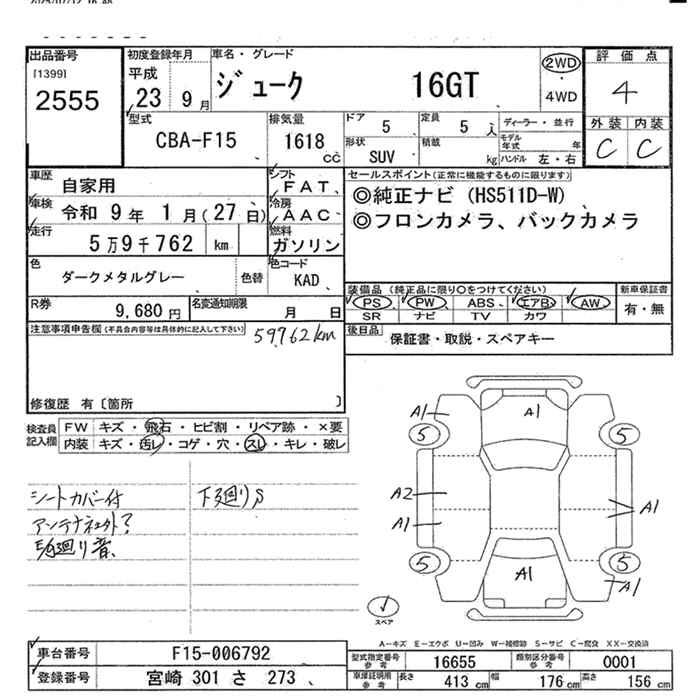 出品番号
[1399]
2555
初度登録年月
平成
23 9月
車名・グレード
ジューク 16GT
2WD
4WD
評価点
4
外装 内装
C C
型式
CBA-F15
排気量
1618
cc
ドア
5
定員
5 人
ディーラー・並行
形状
SUV
積載
kg
モデル年式 年
ハンドル 左・右
車歴
自家用
シフト
FAT
車検
令和 9年 1月(27日)
冷房
AAC
走行
5万9千762 km
燃料
ガソリン
色
ダークメタルグレー
色替
色コード
KAD
セールスポイント(正常に機能するものに限ります)
◎純正ナビ (HS511D-W)
◎フロンカメラ、バックカメラ
R券
9,680 円
名変通知期限
月 日
装備品 (純正品に限り○をつけてください)
PS PW ABS エアB AW
SR ナビ TV カワ
新車保証書
有・無
後日品
保証書・取説・スペアキー
注意事項申告欄(不具合内容等は具体的に記入して下さい)
59762km
修復歴 有〔箇所 〕
検査員
記入欄
FW キズ・飛石・ヒビ割・リペア跡・×要
内装 キズ・汚レ・コゲ・穴・スレ・キレ・破レ
シートカバー付
アンテナネジ外?
下廻りS
廻り音
A1
A1
5
5
A2
A1
A1
5
5
A1
A1
スペア
A-キズ E-エクボ U-凹み W-補修跡 S-サビ C-腐食 XX-交換済
車台番号
F15-006792
登録番号
宮崎 301 さ 273
型式指定番号
参考
16655
類別区分番号
参考
0001
車庫証明用
参考
長さ
413 cm
幅
176 cm
高さ
156 cm